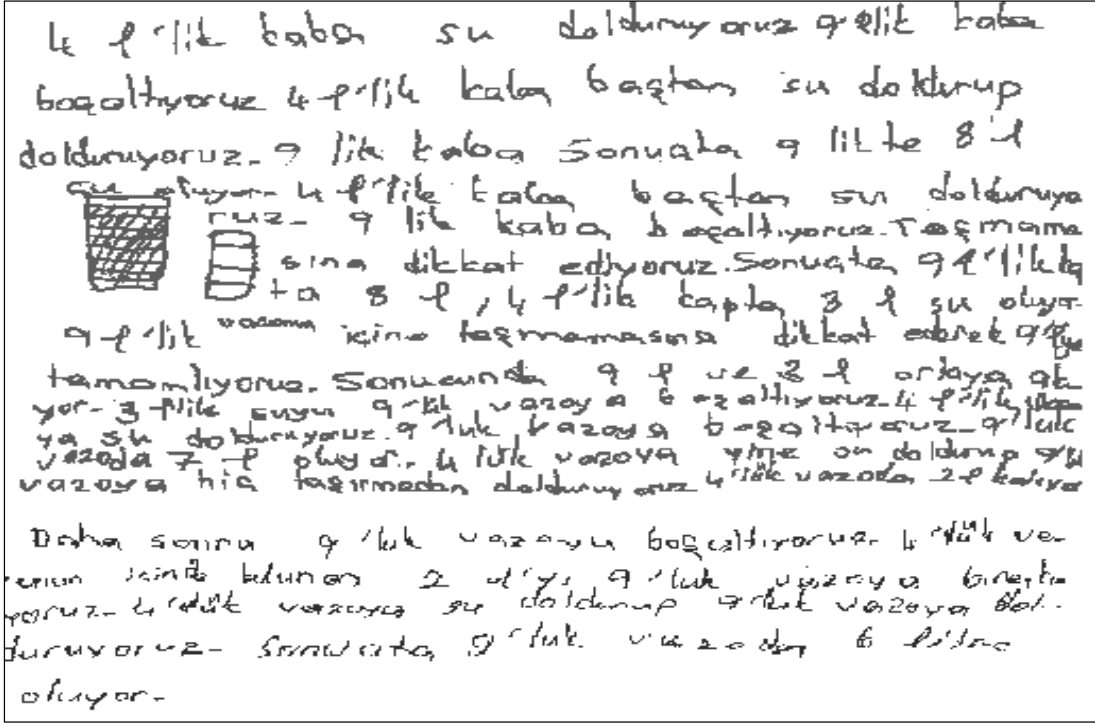 4 l'lik kaba su dolduruyoruz 9 l'lik kaba
boşaltıyoruz 4 l'lik kaba baştan su doldurup
dolduruyoruz. 9 lik kaba Sonuçta 9 litte 8 l
su oluyor. 4 l'lik kaba baştan su dolduruyo
ruz. 9 lik kaba boşaltıyoruz. Taşmama
sına dikkat ediyoruz. Sonuçta 9 l'lik ka
ta 8 l, 4 l'lik kapta 3 l su oluyor
9 l'lik vazonun içine taşmamasına dikkat ederek 9 l'ye
tamamlıyoruz. Sonucunda 9 l ve 3 l ortaya çık
yor. 3 l'lik suyu 9'luk vazoya boşaltıyoruz. 4 l'lik
ya su dolduruyoruz. 9'luk vazoya boşaltıyoruz. 9'luk
vazoda 7 l oluyor. 4 lük vazoya yine su doldurup 9'luk
vazoya hiç taşırmadan dolduruyoruz 4'lük vazoda 2 l kalıyor
Daha sonra 9'luk vazoyu boşaltıyoruz. 4'lük va-
zonun içinde bulunan 2 l'yi 9'luk vazoya
yoruz. 4'lük vazoya su doldurup 9'luk vazoya dol-
duruyoruz. Sonuçta 9'luk vazoda 6 litre
oluyor.